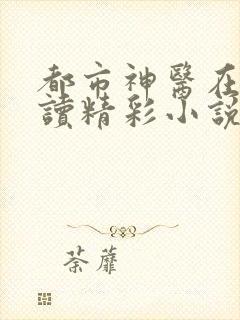 都市神醫在
讀精彩小說
荼蘼